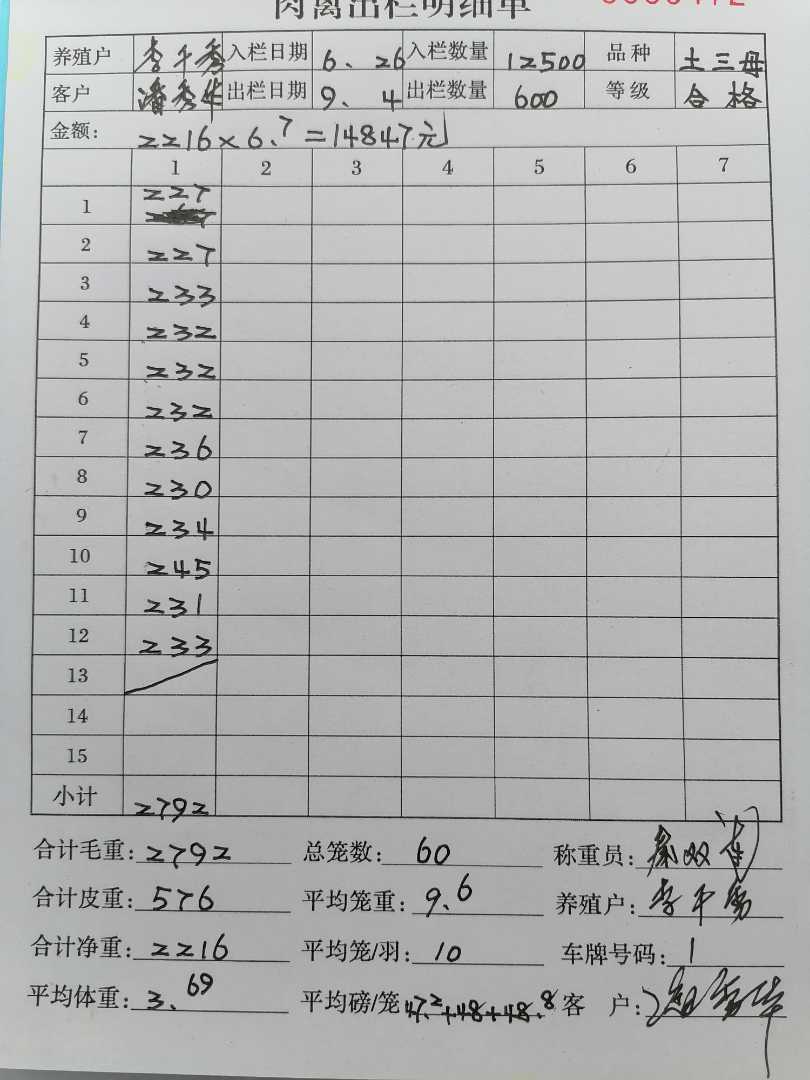 肉禽出栏明细单
养殖户 李千秀 入栏日期 6. 26 入栏数量 12500 品种 土三母
客户 潘秀华 出栏日期 9. 4 出栏数量 600 等级 合格
金额: 2216×6.7=14847元
1 2 3 4 5 6 7
1 227
2 227
3 233
4 232
5 232
6 232
7 236
8 230
9 234
10 245
11 231
12 233
13
14
15
小计 2792
合计毛重: 2792 总笼数: 60 称重员:
合计皮重: 576 平均笼重: 9.6 养殖户:
合计净重: 2216 平均笼/羽: 10 车牌号码: 1
平均体重: 3.69 平均磅/笼 47.2+48+48.8 客 户: